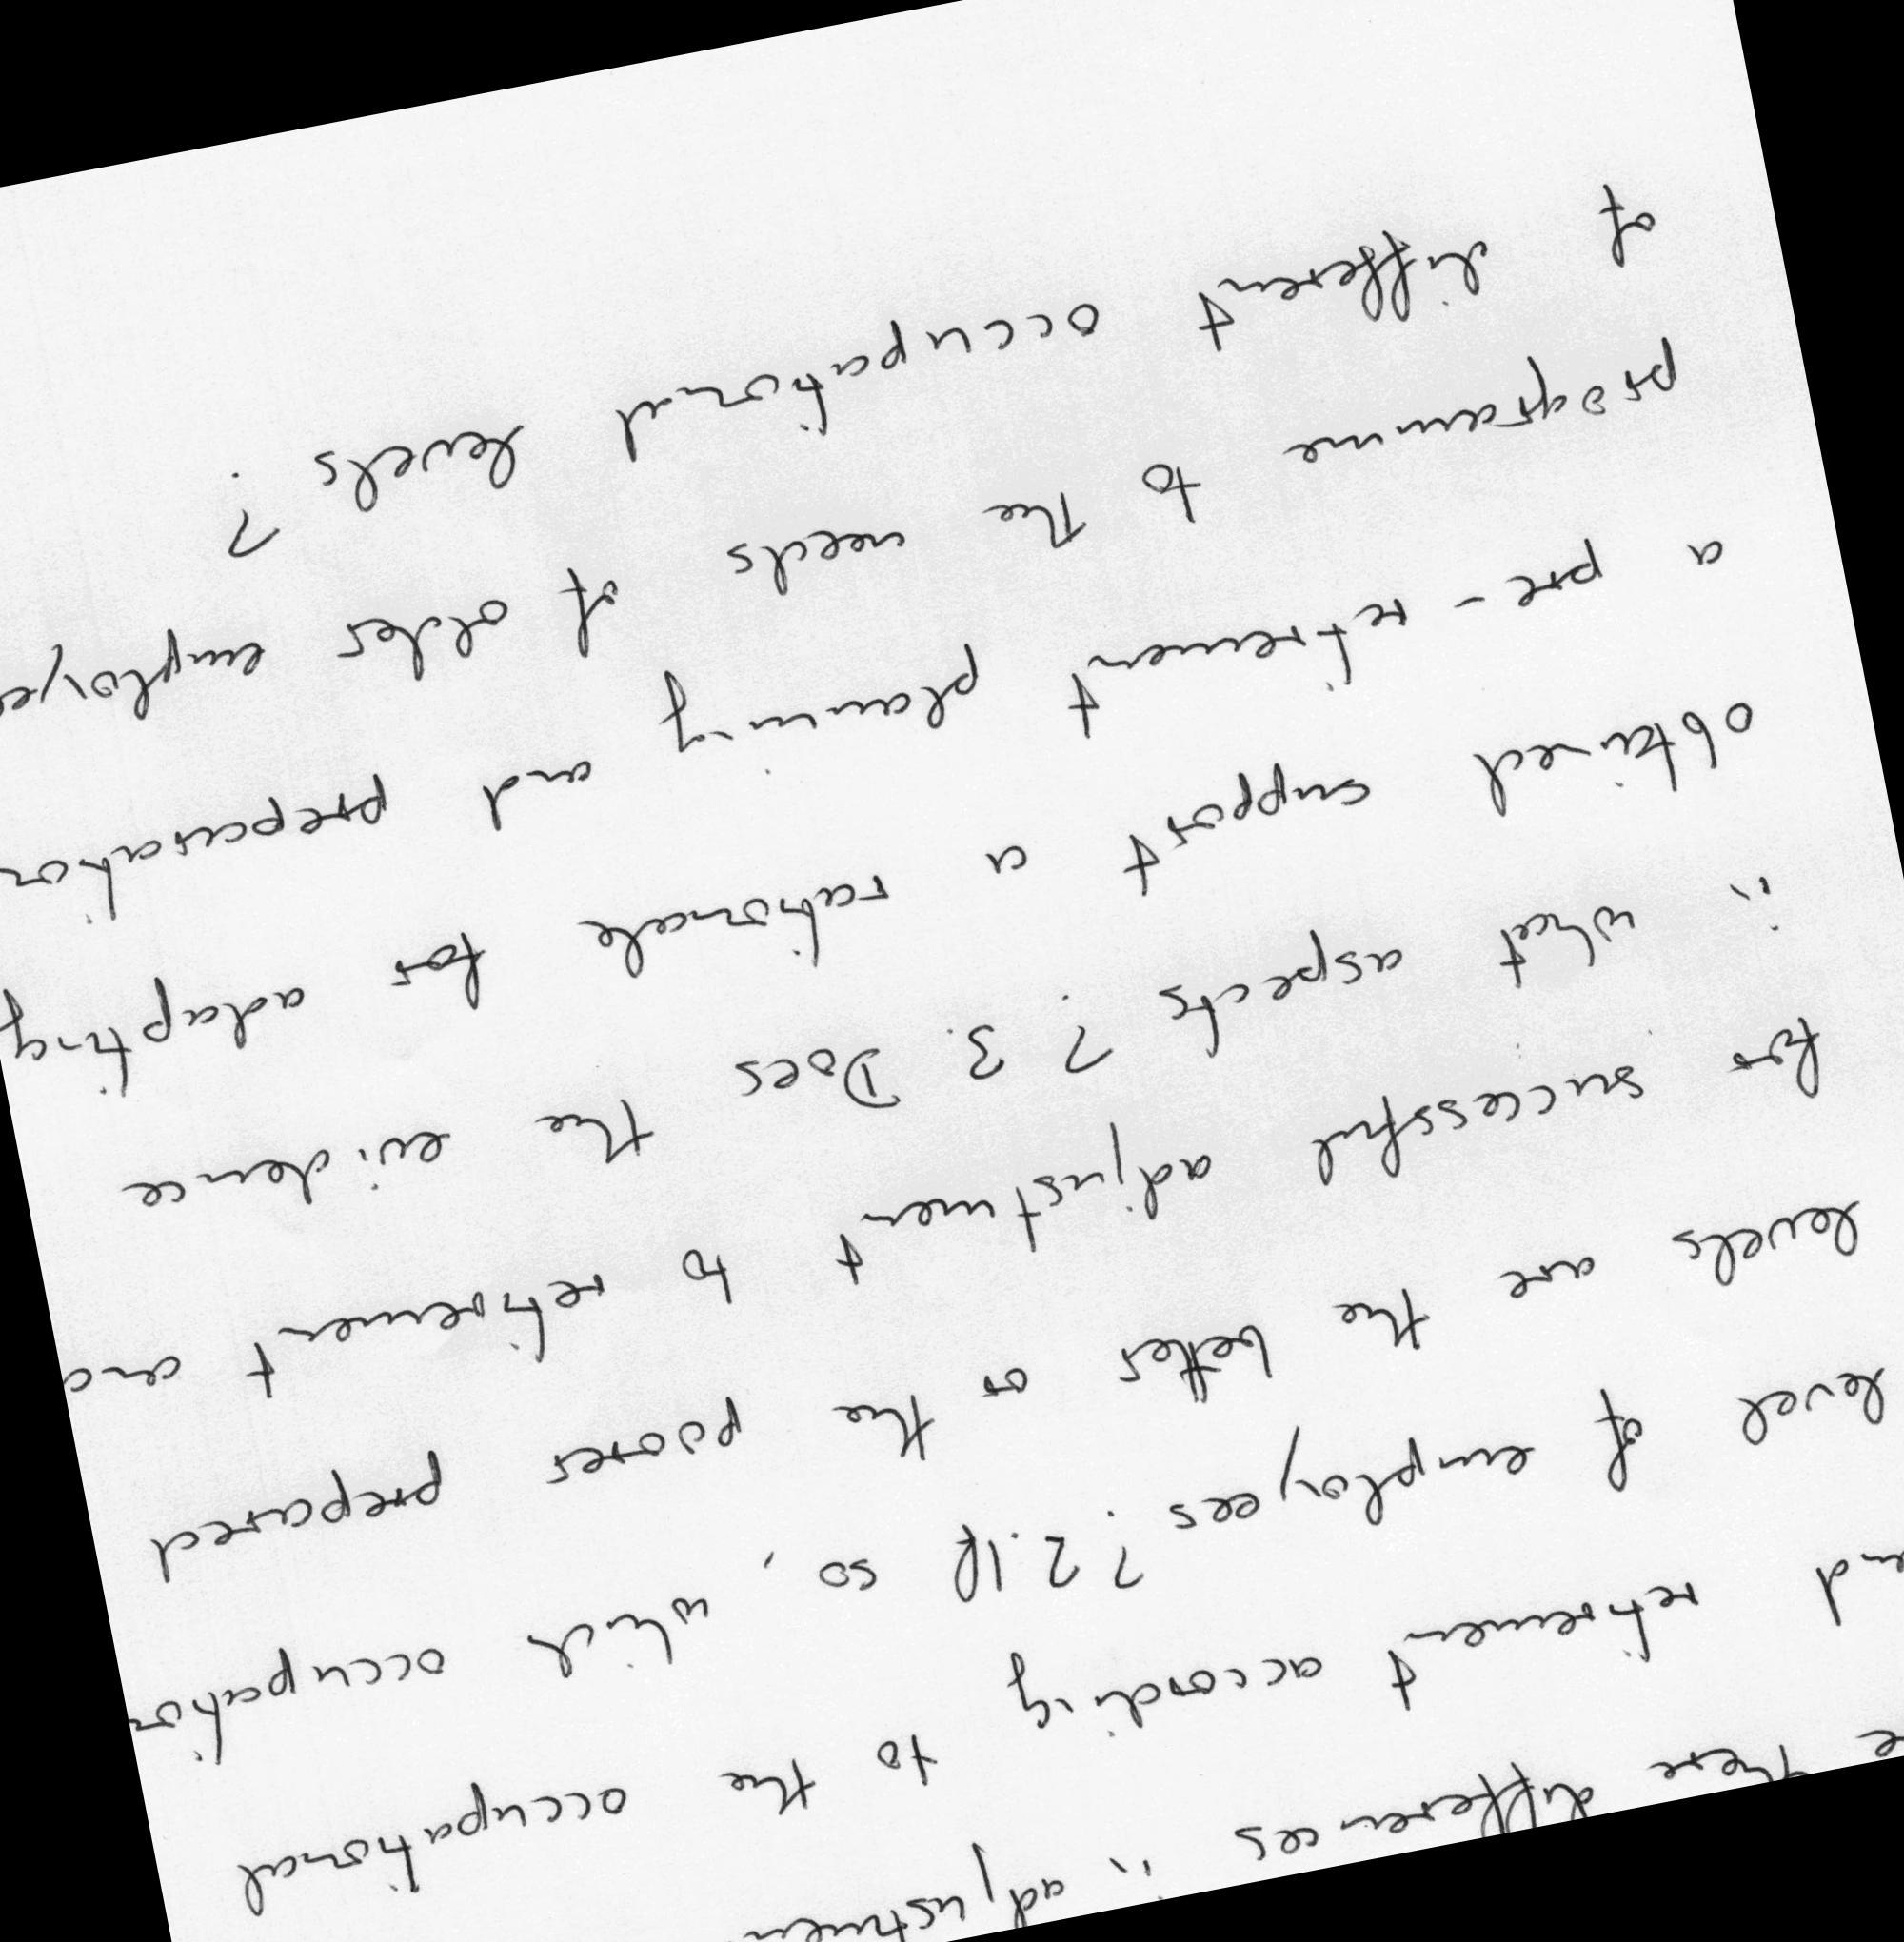 there differences in adjustmen
retirement according to the occupational
level of employees ? 2. If so, which occupation
levels are the better or the poorer prepared
for successful adjustment to retirement and
in what aspects ? 3. Does the evidence
obtained support a rationale for adapting
a pre - retirement planning and preparation
programme to the needs of older employe
of different occupational levels ?